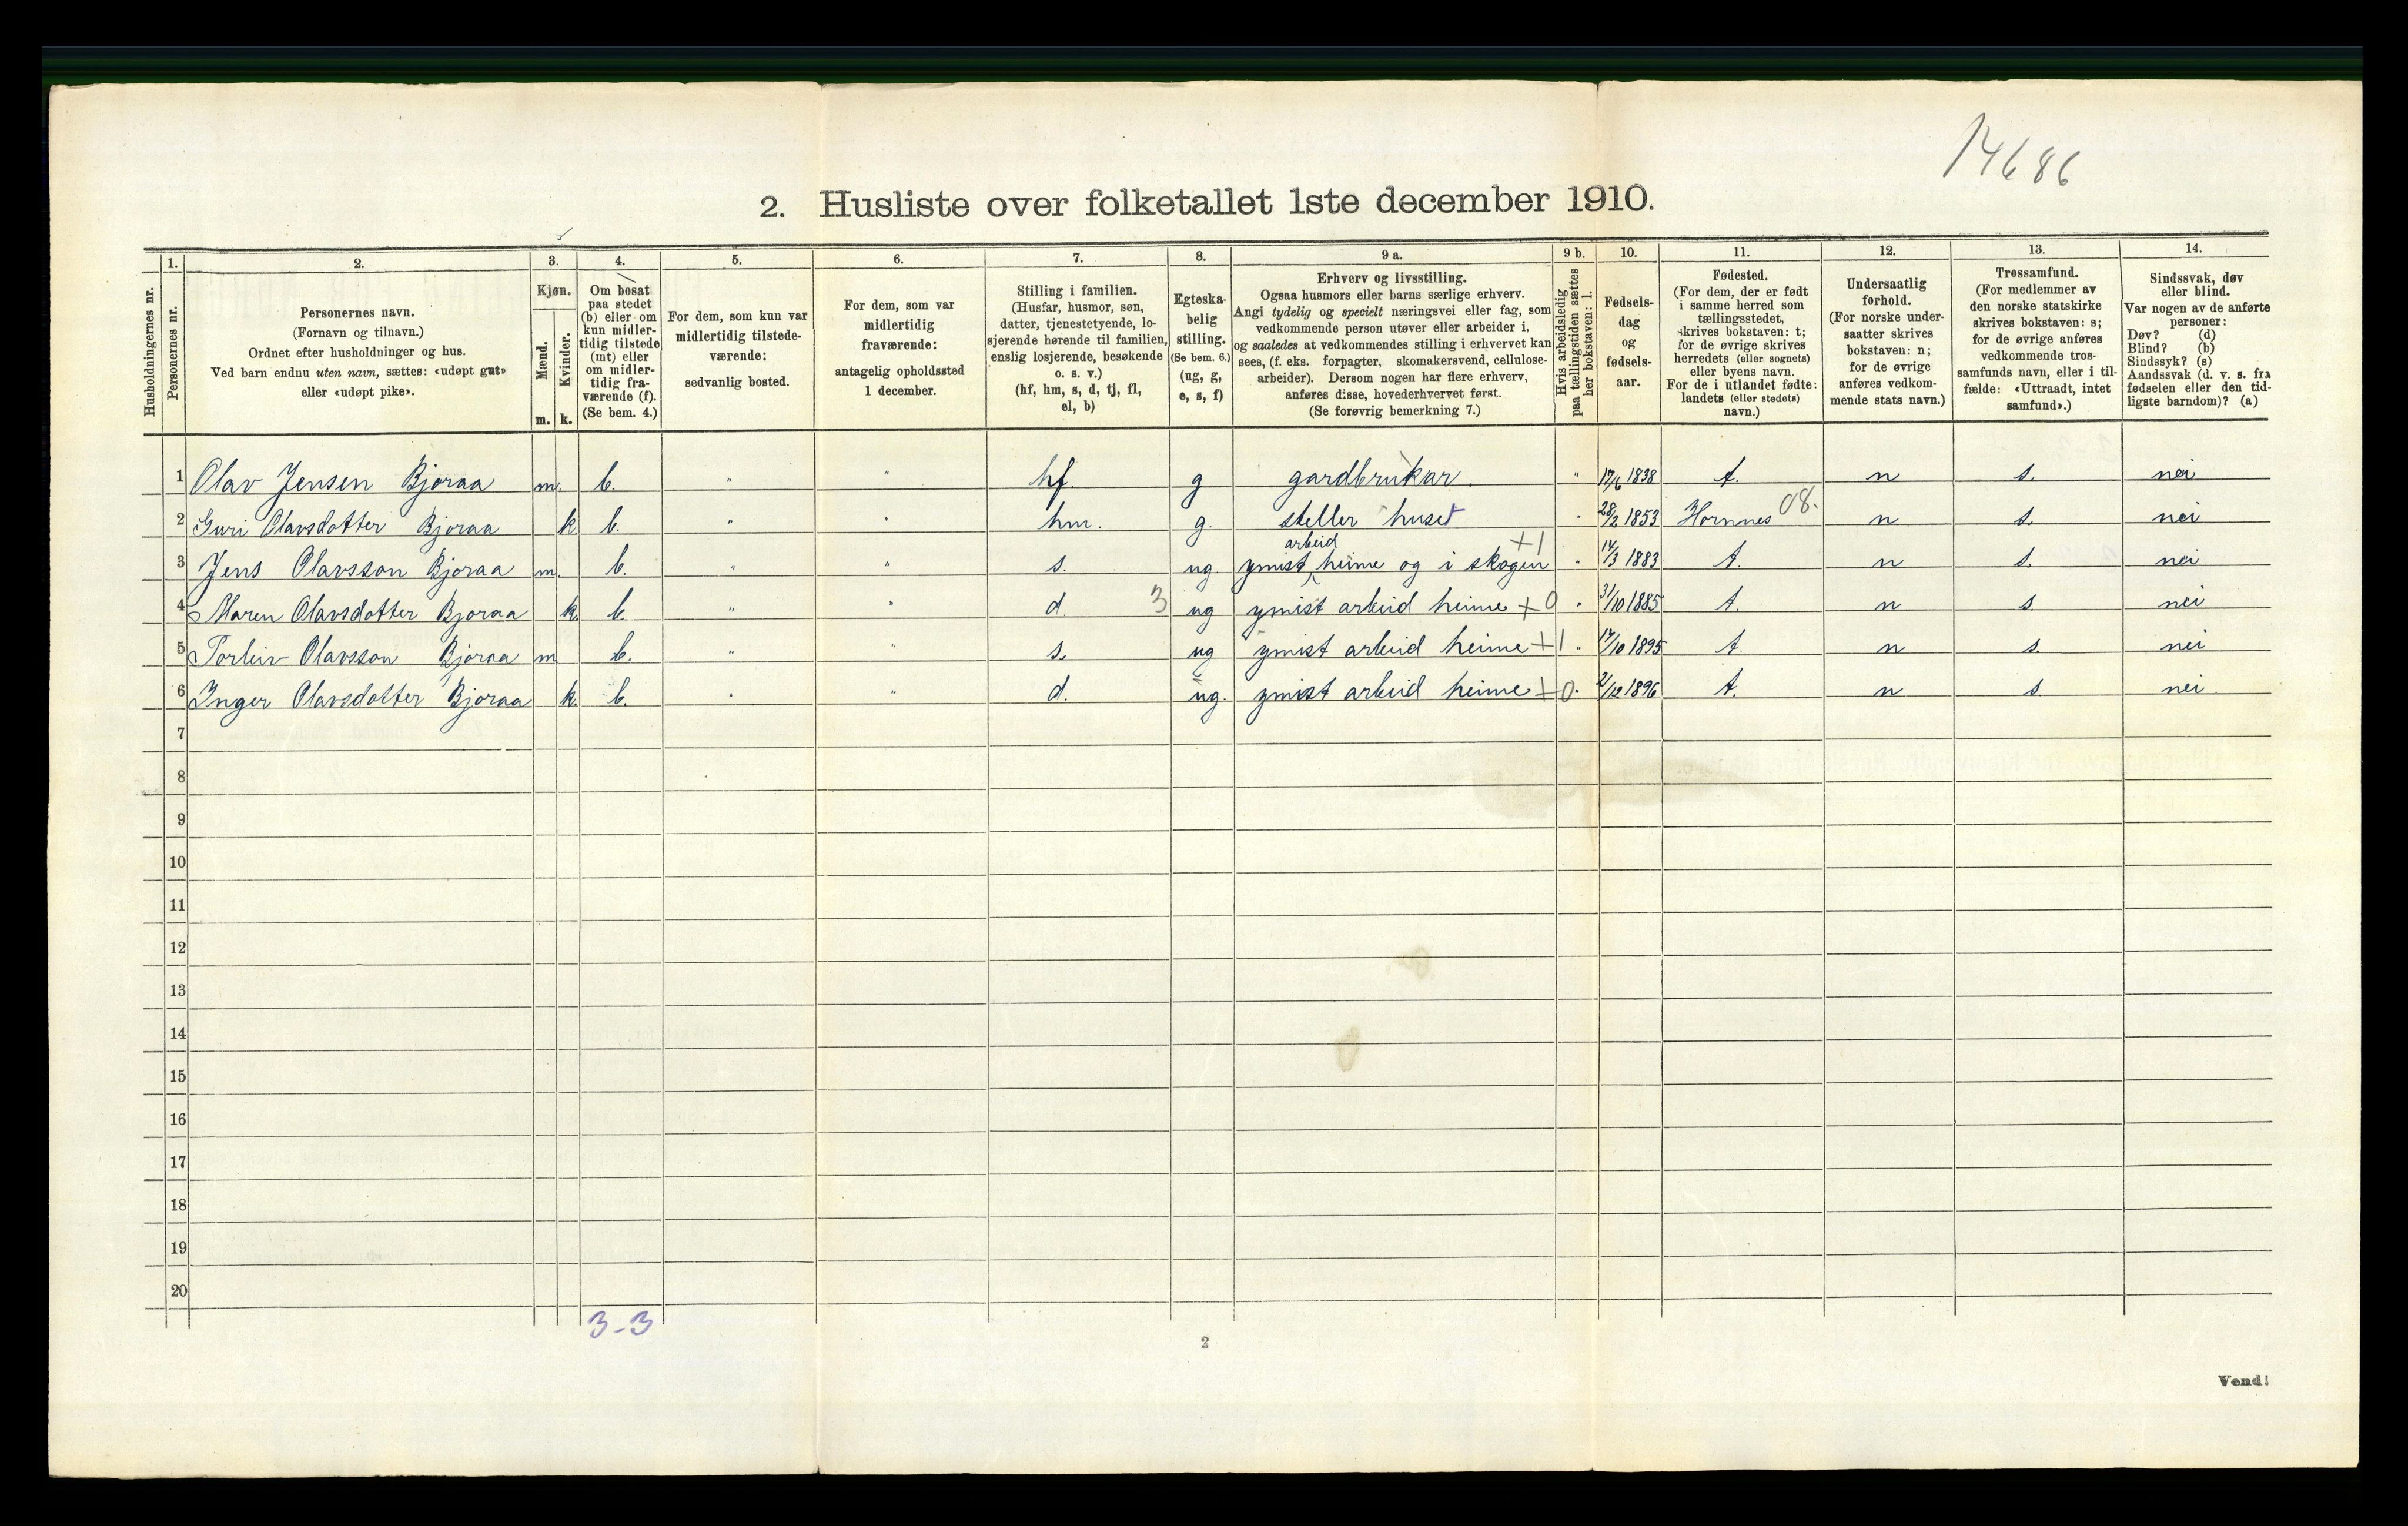 14686
2. Husliste over folketallet 1ste december 1910.
Husholdningernes nr.
1.
Personernes nr.
2.
Personernes navn.
(Fornavn og tilnavn.)
Ordnet efter husholdninger og hus.
Ved barn endnu uten navn, sættes: «udøpt gut»
eller «udøpt pike».
3.
Kjøn.
Mænd.
Kvinder.
m. k.
4.
Om bosat
paa stedet
(b) eller om
kun midler-
tidig tilstede
(mt) eller
om midler-
tidig fra-
værende (f).
(Se bem. 4.)
5.
For dem, som kun var
midlertidig tilstede-
værende:
sedvanlig bosted.
6.
For dem, som var
midlertidig
fraværende:
antagelig opholdssted
1 december.
7.
Stilling i familien.
(Husfar, husmor, søn,
datter, tjenestetyende, lo-
sjerende hørende til familien,
enslig losjerende, besøkende
o. s. v.)
(hf, hm, s, d, tj, fl,
el, b)
8.
Egteska-
belig
stilling.
(Se bem. 6.)
(ug, g,
e, s, f)
9 a.
Erhverv og livsstilling.
Ogsaa husmors eller barns særlige erhverv.
Angi tydelig og specielt næringsvei eller fag, som
vedkommende person utøver eller arbeider i,
og saaledes at vedkommendes stilling i erhvervet kan
sees, (f. eks. forpagter, skomakersvend, cellulose-
arbeider). Dersom nogen har flere erhverv,
anføres disse, hovederhvervet først.
(Se forøvrig bemerkning 7.)
9 b.
Hvis arbeidsledig
paa tællingstiden sættes
her bokstaven: l.
10.
Fødsels-
dag
og
fødsels-
aar.
11.
Fødested.
(For dem, der er født
i samme herred som
tællingsstedet,
skrives bokstaven: t;
for de øvrige skrives
herredets (eller sognets)
eller byens navn.
For de i utlandet fødte:
landets (eller stedets)
navn.)
12.
Undersaatlig
forhold.
(For norske under-
saatter skrives
bokstaven: n;
for de øvrige
anføres vedkom-
mende stats navn.)
13.
Trossamfund.
(For medlemmer av
den norske statskirke
skrives bokstaven: s;
for de øvrige anføres
vedkommende tros-
samfunds navn, eller i til-
fælde: «Uttraadt, intet
samfund».)
14.
Sindssvak, døv
eller blind.
Var nogen av de anførte
personer:
Døv? (d)
Blind? (b)
Sindssyk? (s)
Aandssvak (d. v. s. fra
fødselen eller den tid-
ligste barndom)? (a)
1 Olav Jensen Bjoraa m. b. " " hf. g gardbrukar. " 17/6 1838 t. n s. nei
2 Guri Olavsdotter Bjoraa k b. " " hm. g. steller huset " 28/2 1853 Hornnes 08. n s. nei
3 Jens Olavsson Bjoraa m. b. " " s. ug. ymist arbeid heime og i skogen +1 " 14/3 1883 t. n s. nei
4 Maren Olavsdotter Bjoraa k. b. " " d. 3 ug ymist arbeid heime +0 " 31/10 1885 t. n s nei
5 Torleiv Olavsson Bjoraa m b. " " s. ug ymist arbeid heime +1 " 17/10 1895 t. n s. nei
6 Inger Olavsdotter Bjoraa k. b. " " d. ug. ymist arbeid heime +0 " 2/12 1896 t. n s nei.
7
8
9
10
11
12
13
14
15
16
17
18
19
20
3-3
2
Vend!